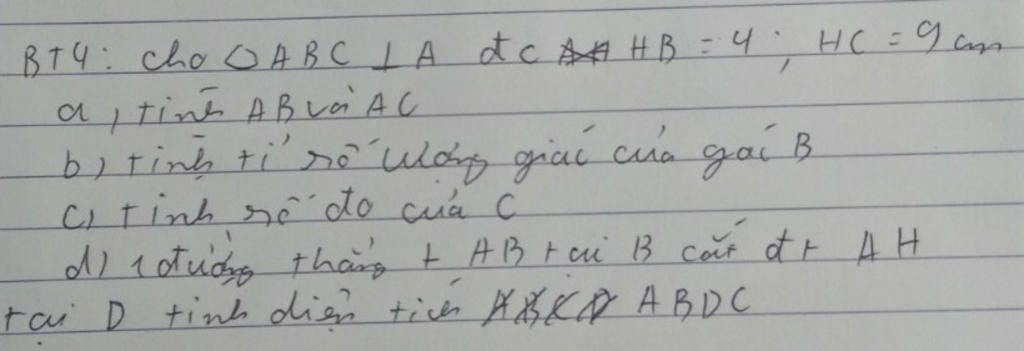 BT4: cho △ABC ⊥ A đc HB = 4; HC = 9 cm
a, tính AB và AC
b) tính tỉ số lượng giác của gói B
c) tính số đo của C
d) 1 đường thẳng ⊥ AB tại B cắt đt AH
tại D tính diện tích ABDC